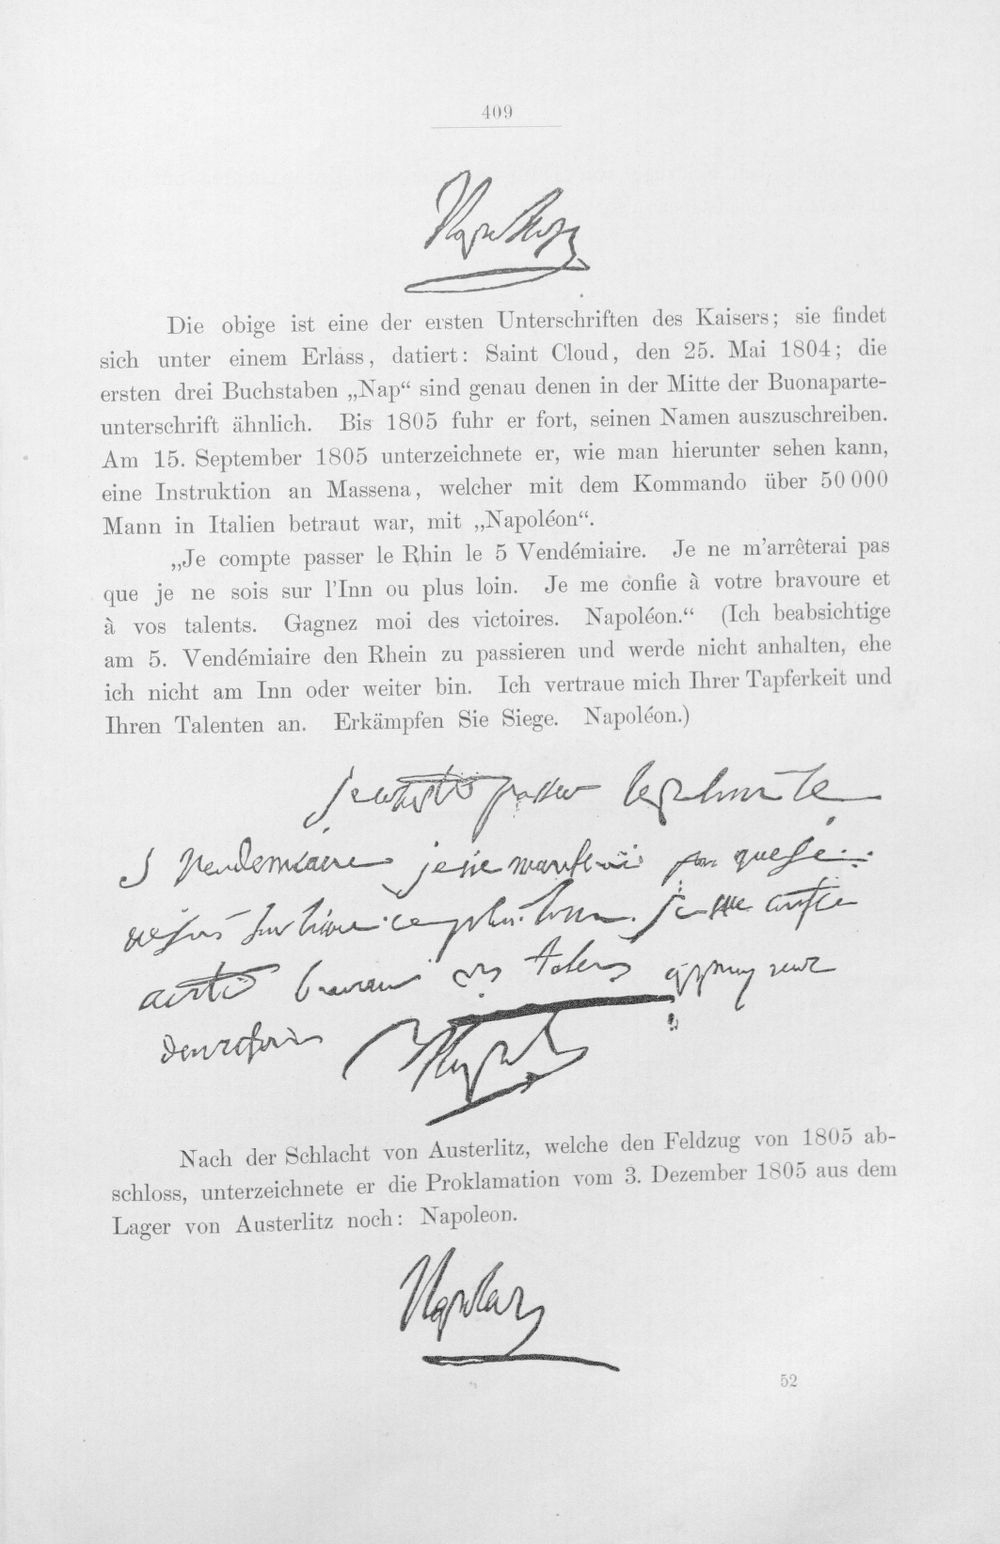 409
Die obige ist eine der ersten Unterschriften des Kaisers; sie findet
sich unter einem Erlass, datiert: Saint Cloud, den 25. Mai 1804; die
ersten drei Buchstaben „Nap“ sind genau denen in der Mitte der Buonaparte-
unterschrift ähnlich. Bis 1805 fuhr er fort, seinen Namen auszuschreiben.
Am 15. September 1805 unterzeichnete er, wie man hierunter sehen kann,
eine Instruktion an Massena, welcher mit dem Kommando über 50 000
Mann in Italien betraut war, mit „Napoléon“.
„Je compte passer le Rhin le 5 Vendémiaire. Je ne m'arrêterai pas
que je ne sois sur l'Inn ou plus loin. Je me confie à votre bravoure et
à vos talents. Gagnez moi des victoires. Napoléon.“ (Ich beabsichtige
am 5. Vendémiaire den Rhein zu passieren und werde nicht anhalten, ehe
ich nicht am Inn oder weiter bin. Ich vertraue mich Ihrer Tapferkeit und
Ihren Talenten an. Erkämpfen Sie Siege. Napoléon.)
passer
Vendemiaire
Nach der Schlacht von Austerlitz, welche den Feldzug von 1805 ab-
schloss, unterzeichnete er die Proklamation vom 3. Dezember 1805 aus dem
Lager von Austerlitz noch: Napoleon.
52